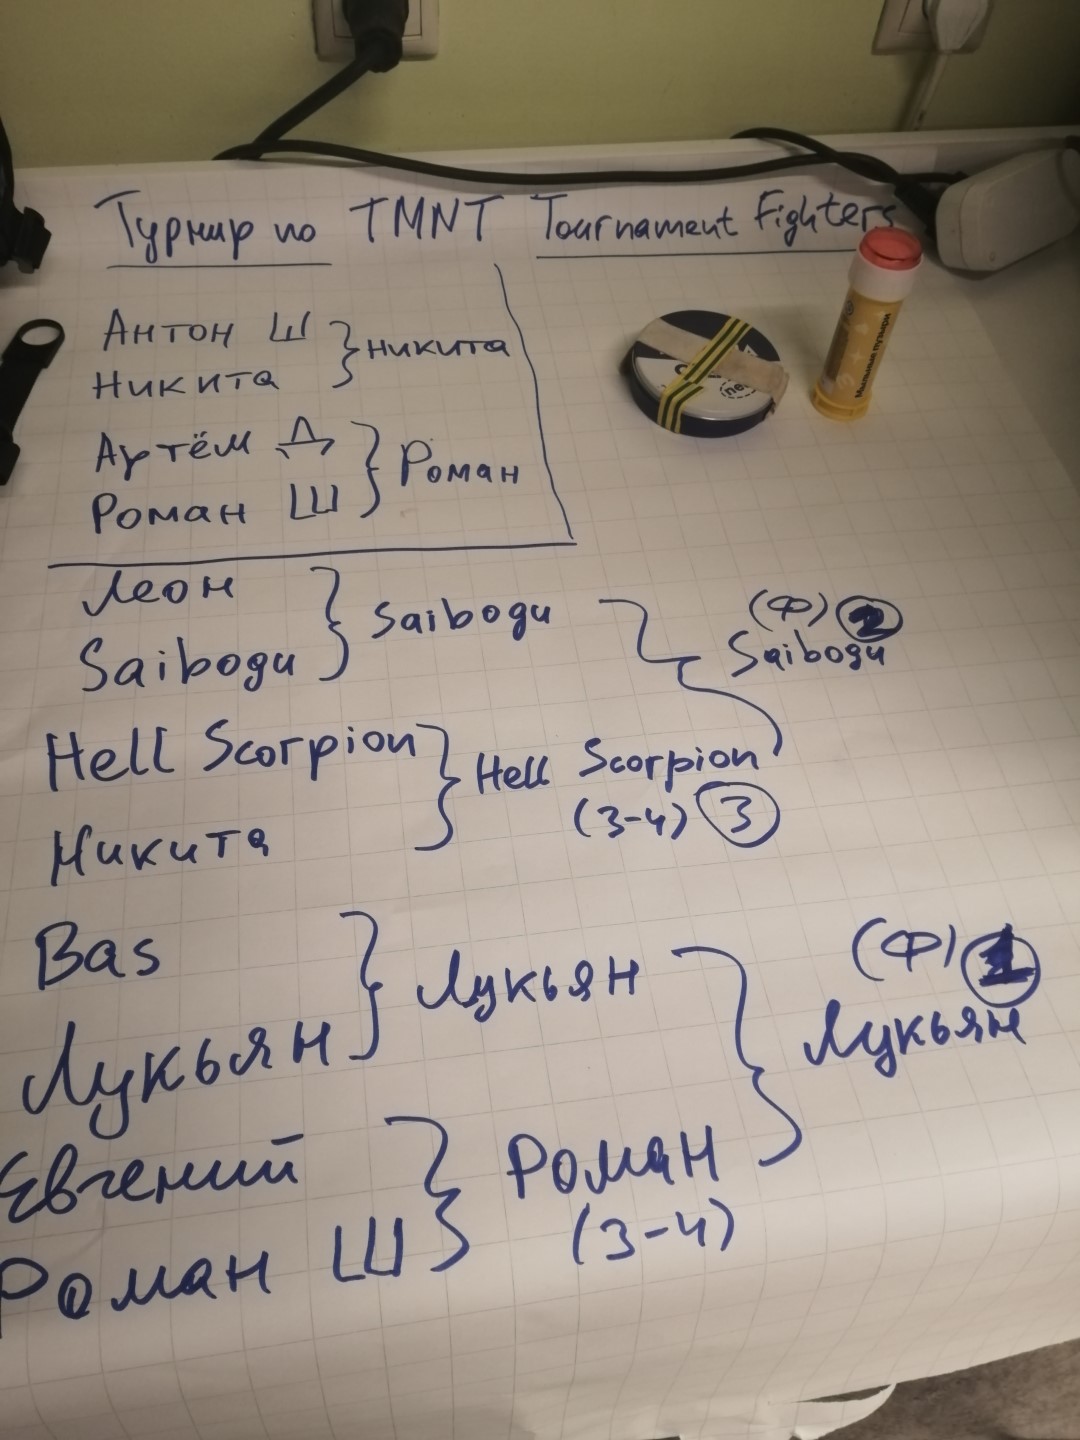 Турнир по TMNT Tournament Fighters
Антон Ш
Никита
Никита
Артём Д
Роман Ш
Роман
Леон
Saibogu
Saibogu
(Ф) 2
Saibogu
Hell Scorpion
Никита
Hell Scorpion
(3-4) 3
Bas
Лукьян
Лукьян
(Ф) 1
Лукьян
Евгений
Роман Ш
Роман
(3-4)
Мыльные пузыри